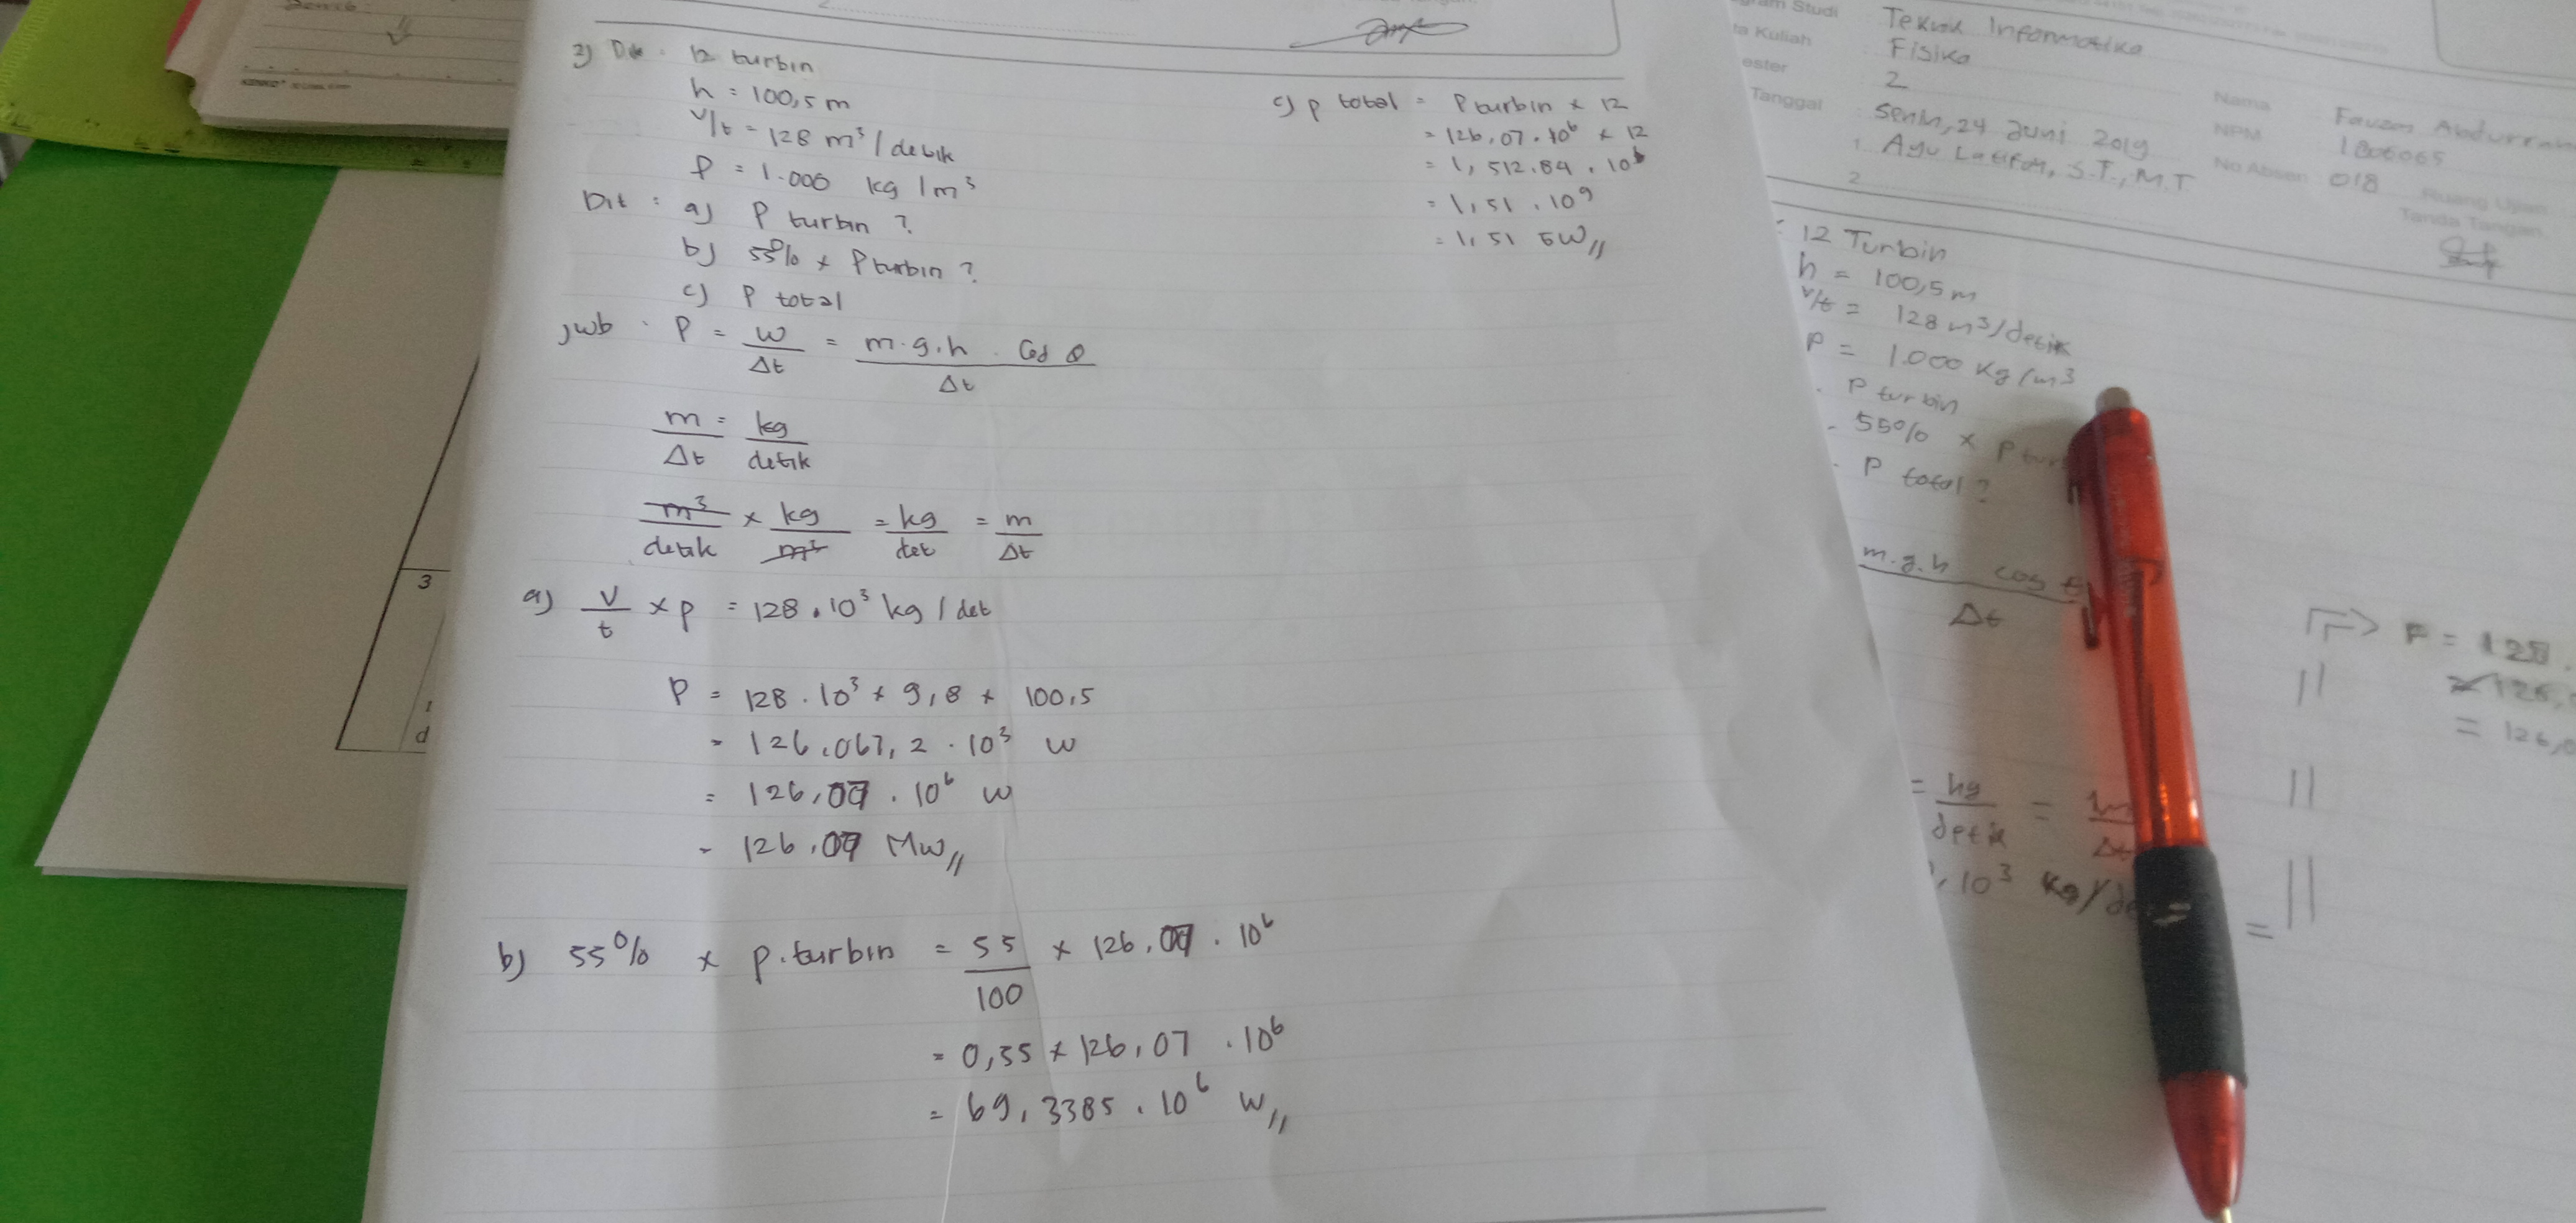 3) Dik : 12 turbin
h = 100,5 m
V/t = 128 m³ / detik
ρ = 1.000 kg / m³
Dit : a) P turbin ?
b) 55% x P turbin ?
c) P total
jwb : P = W/Δt = m.g.h . Cos θ/Δt
m/Δt = kg/detik
m³/detik x kg/m³ = kg/det = m/Δt
a) V/t x ρ = 128 . 10³ kg / det
P = 128 . 10³ x 9,8 x 100,5
= 126.067,2 . 10³ W
= 126,07 . 10⁶ W
= 126,07 MW //
b) 55% x P.turbin = 55/100 x 126,07 . 10⁶
= 0,55 x 126,07 . 10⁶
= 69,3385 . 10⁶ W //
c) P total = P turbin x 12
= 126,07 . 10⁶ x 12
= 1,512.84 . 10⁶
= 1,51 . 10⁹
= 1,51 GW //
3
d
Studi Teknik Informatika
Kuliah Fisika
ester 2
Tanggal Senin, 24 Juni 2019
1. Ayu Latifah, S.T., M.T
2
Nama Fauzan
NPM 1806065
No Absen 018
Ruang Ujian
Tanda Tangan
: 12 Turbin
h = 100,5 m
V/t = 128 m³/detik
ρ = 1.000 Kg/m³
. P turbin
. 55% x P
. P total ?
m.g.h cos
Δt
= kg/detik =
. 10³ kg/
=> P = 128.
= 126,0
=